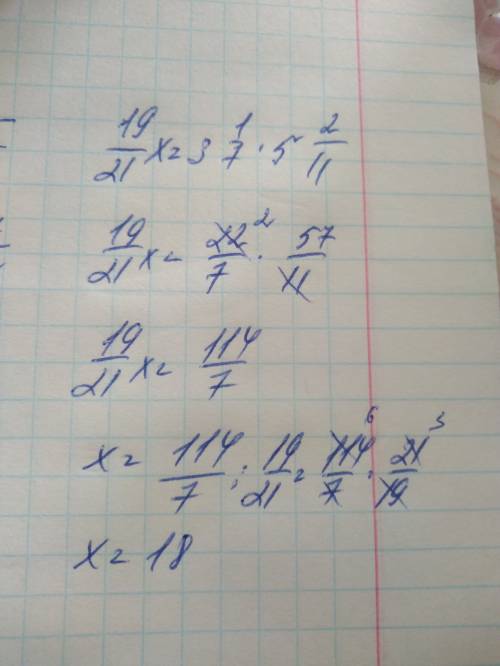 19/21 x = 3 1/7 · 5 2/11
19/21 x = 22/7 2 · 57/11
19/21 x = 114/7
x = 114/7 : 19/21 = 114/7 6 · 21/19 3
x = 18